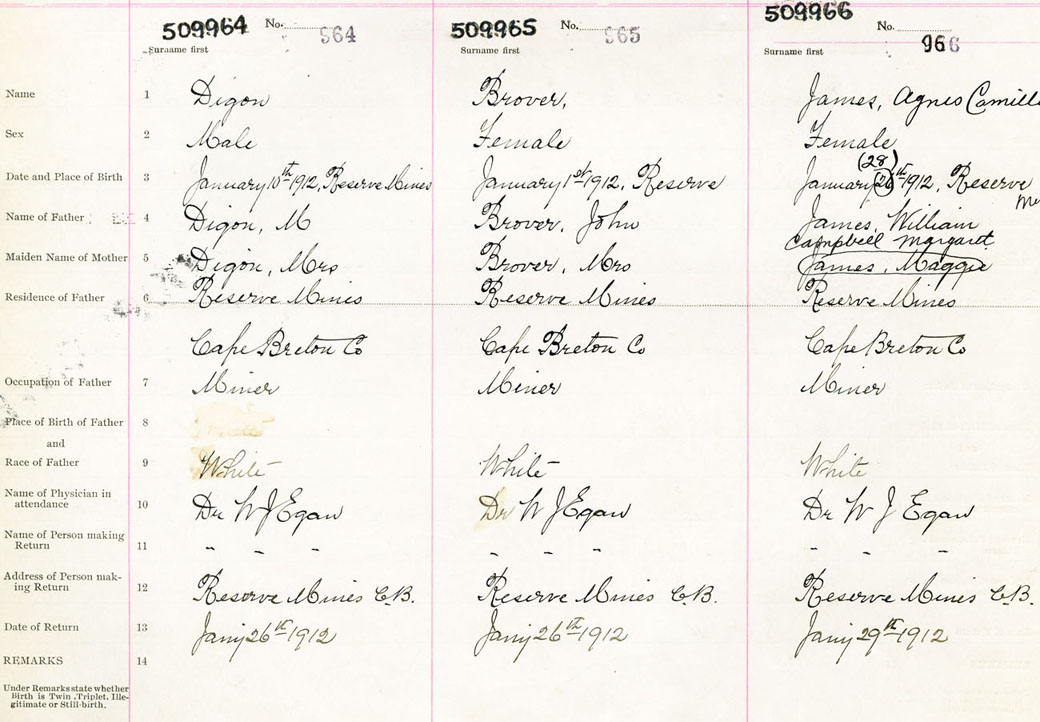 509964 No. 964 509965 No. 965 509966 No. 966
Surname first Surname first Surname first
Name 1 Digon Brover, James, Agnes Camill
Sex 2 Male Female Female
(28)
Date and Place of Birth 3 January 10th 1912, Reserve Mines January 1st 1912, Reserve January 26th 1912, Reserve
Name of Father 4 Digon, M Brover, John James, William
Campbell Margaret
Maiden Name of Mother 5 Digon, Mrs Brover, Mrs James, Maggie
Residence of Father 6 Reserve Mines Reserve Mines Reserve Mines
Cape Breton Co Cape Breton Co Cape Breton Co
Occupation of Father 7 Miner Miner Miner
Place of Birth of Father 8
and
Race of Father 9 White White White
Name of Physician in
attendance 10 Dr W J Egan Dr W J Egan Dr W J Egan
Name of Person making
Return 11 " " " " " " " " "
Address of Person mak-
ing Return 12 Reserve Mines C.B. Reserve Mines C.B. Reserve Mines C.B.
Date of Return 13 Jany 26th 1912 Jany 26th 1912 Jany 29th 1912
REMARKS 14
Under Remarks state whether
Birth is Twin, Triplet, Ille-
gitimate or Still-birth.